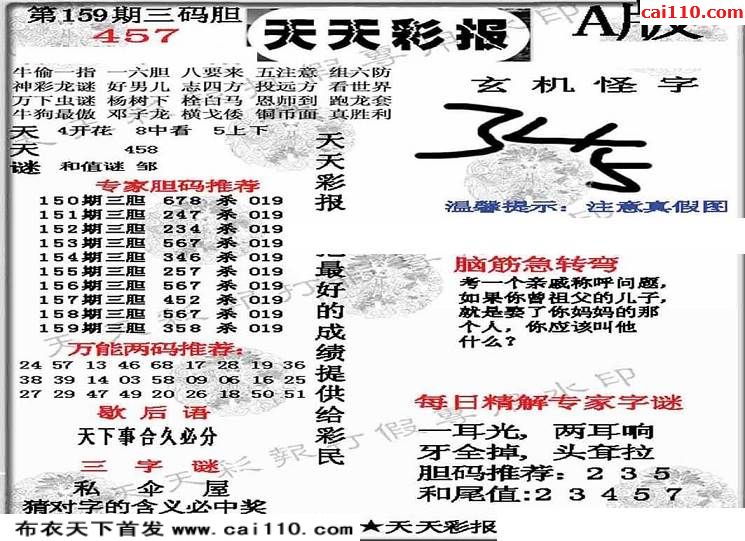 第159期三码胆
457
天天彩报
A版
cai110.com
牛偷一指 一六胆 八要来 五注意 组六防
神彩龙谜 好男儿 志四方 投远方 看世界
万下虫谜 杨树下 栓白马 恩师到 跑龙套
牛狗最傲 邓子龙 横戈倭 铜币面 真胜利
天 4开花 8中看 5上下
天 458
谜 和值谜 邹
专家胆码推荐
150期三胆 678 杀 019
151期三胆 247 杀 019
152期三胆 234 杀 019
153期三胆 567 杀 019
154期三胆 346 杀 019
155期三胆 257 杀 019
156期三胆 567 杀 019
157期三胆 452 杀 019
158期三胆 567 杀 019
159期三胆 358 杀 019
万能两码推荐:
24 57 13 46 68 17 28 19 36
38 39 14 03 58 09 06 16 25
27 29 47 49 20 26 18 50 51
歇后语
天下事合久必分
三字谜
私 伞 屋
猜对字的含义必中奖
天天彩报
最好的成绩提供给彩民
玄机怪字
345
温馨提示:注意真假图
脑筋急转弯
考一个亲戚称呼问题,
如果你曾祖父的儿子,
就是娶了你妈妈的那
个人,你应该叫他
什么?
每日精解专家字谜
一耳光,两耳响
牙全掉,头耷拉
胆码推荐:235
和尾值:23457
布衣天下首发 www.cai110.com ★天天彩报